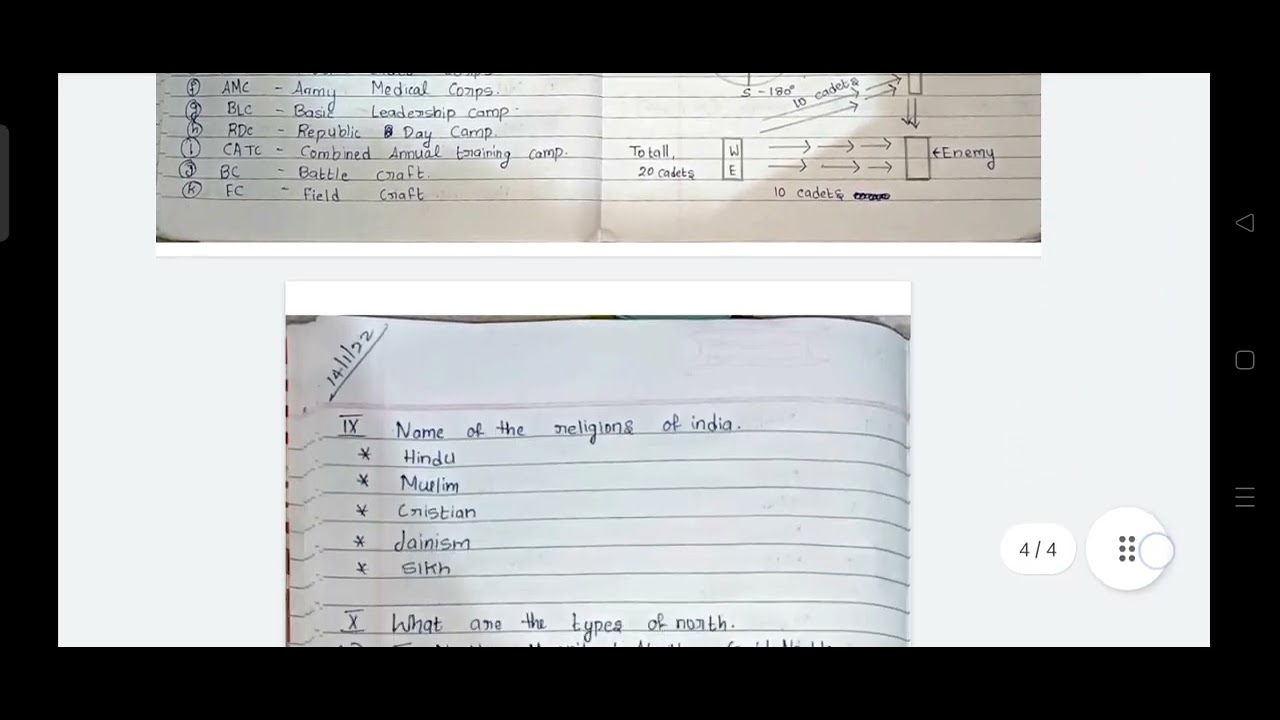 (f) AMC - Army Medical Corps.
(g) BLC - Basic Leadership camp.
(h) RDC - Republic Day Camp.
(i) CATC - Combined Annual training camp.
(j) BC - Battle craft.
(k) FC - Field Craft
S - 180°
10 cadets
Totall,
20 cadets
W
E
←Enemy
10 cadets
14/1/22
IX Name of the religions of india.
* Hindu
* Muslim
* Cristian
* Jainism
* Sikh
X What are the types of north.
4 / 4